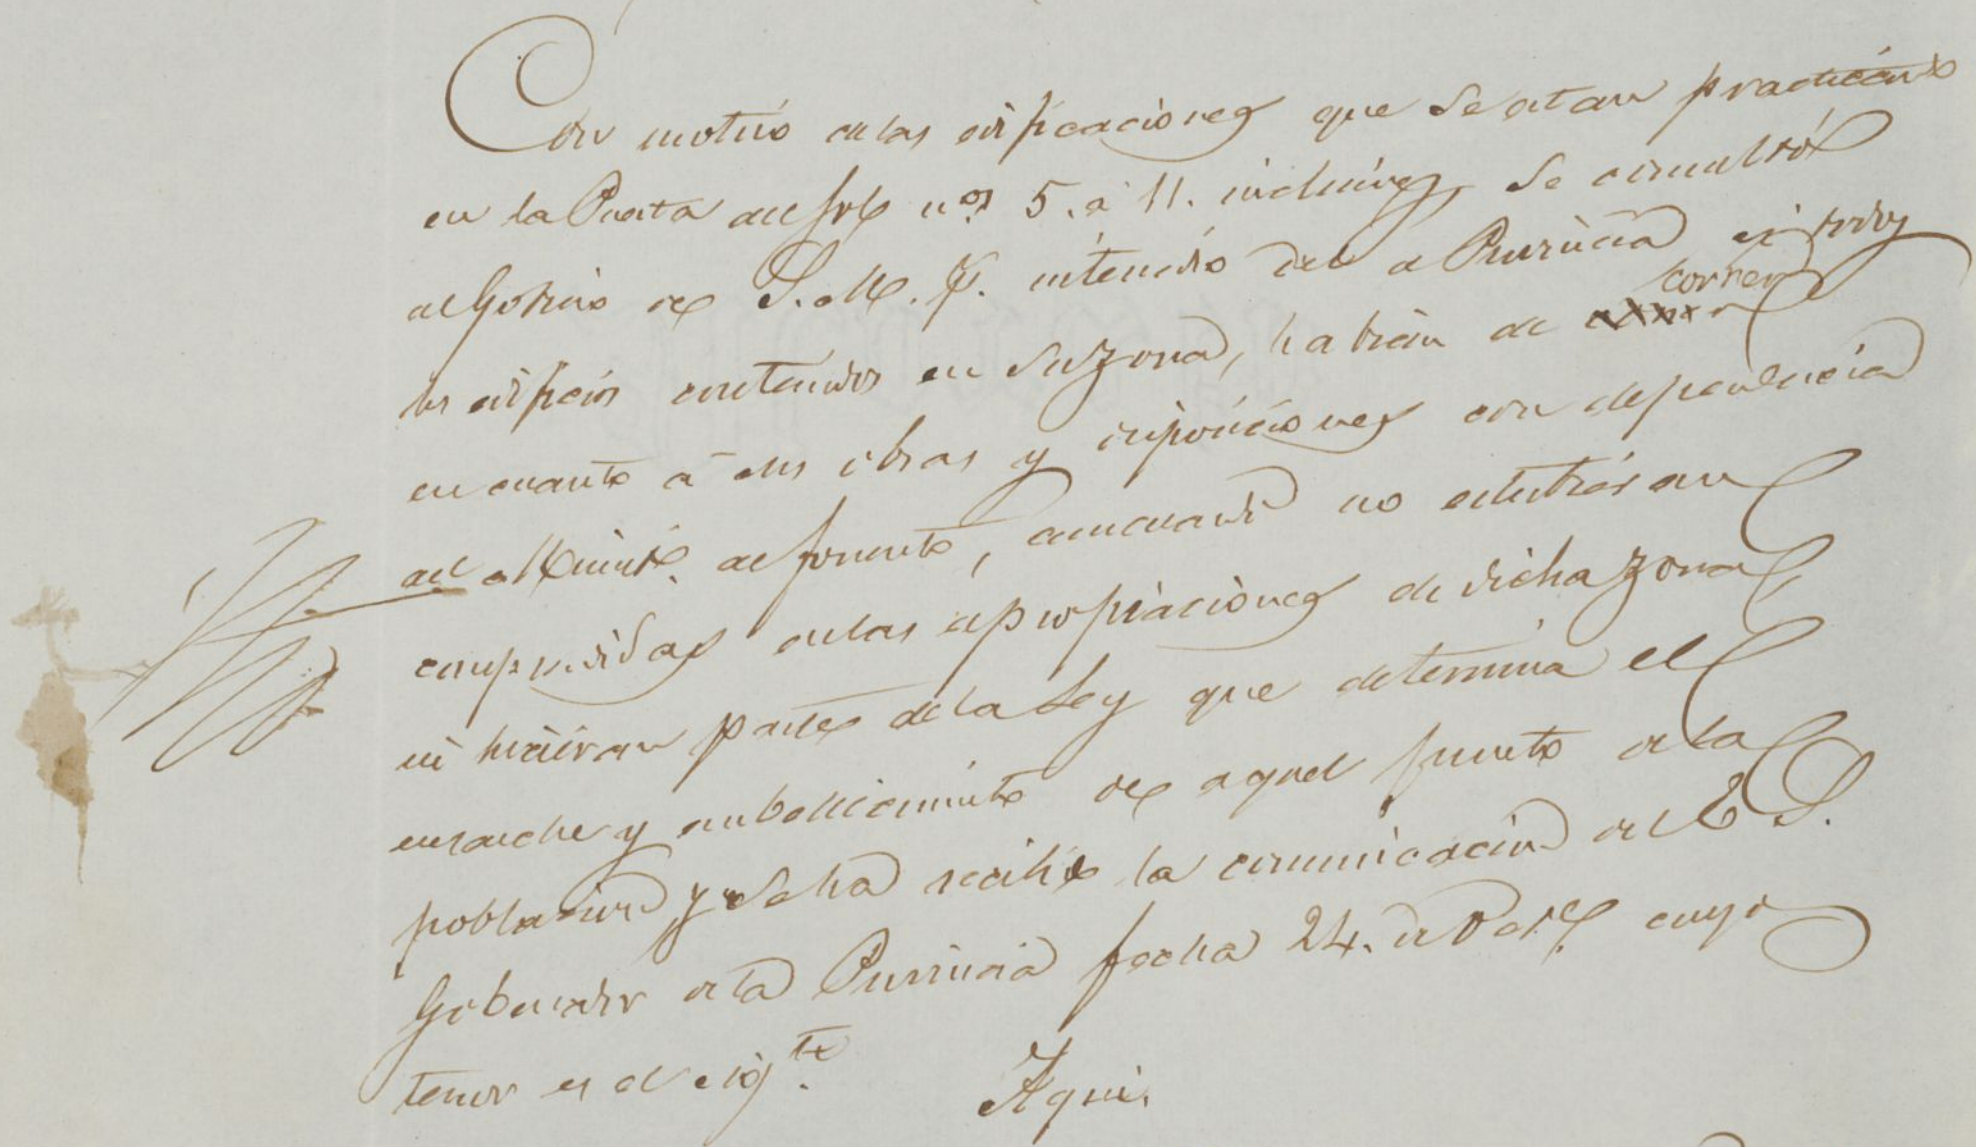 Con motivo de las edificaciones que se estan practicando
en la Puerta del Sol nos 5. a 11. inclusives, se consultó
al Gobierno de S. M. P. intermedio del de Provincia si todos
correr
los edificios contenidos en su zona, habian de
en cuanto á sus obras y disposiciones con dependencia
del Minist.º de fomento, aun cuando no estubiesen
comprendidas en las apropiaciones de dicha zona
ni hicieran parte de la Ley que determina el
ensanche y embellecimiento de aquel punto de la
poblacion y se ha recibido la comunicacion del E. S.
Gobernador de la Provincia fecha 24. de cuyo
tenor es el sigte.
Aqui.